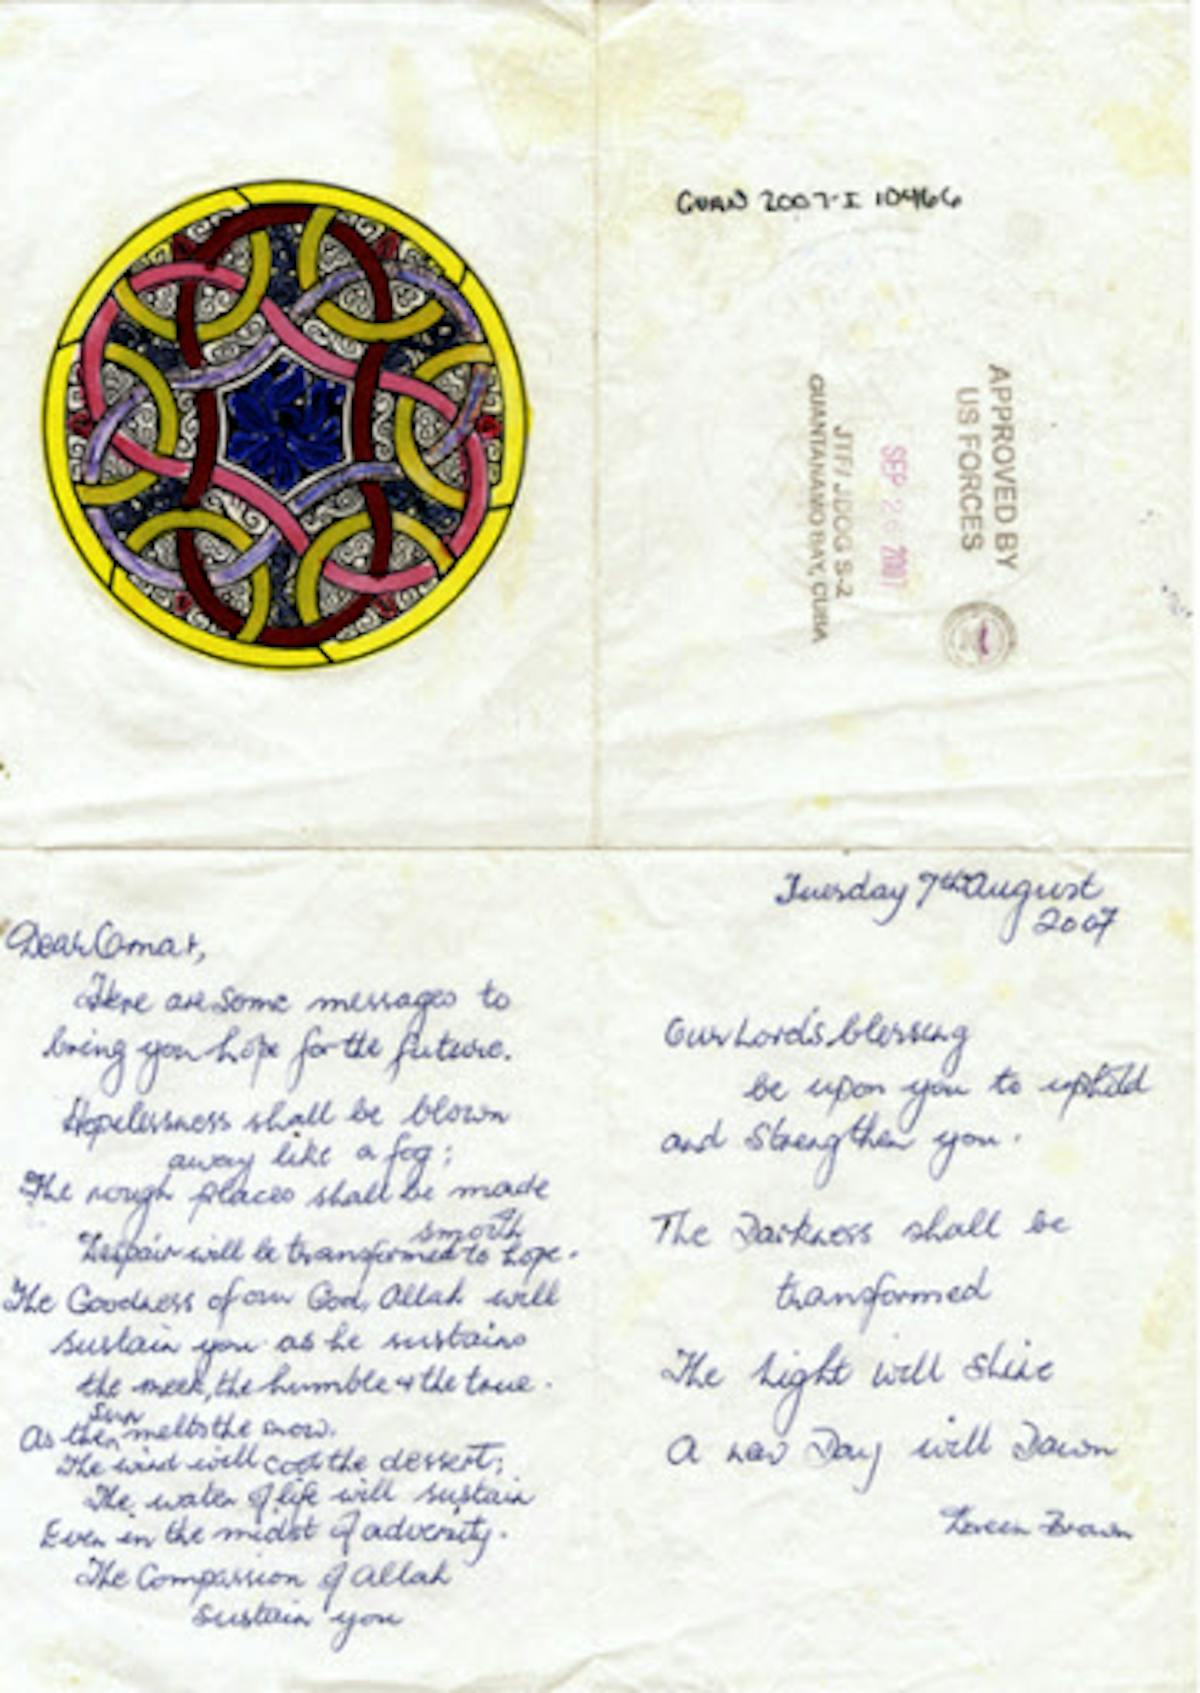 GUAN 2007-I 10466
APPROVED BY
US FORCES
SEP 26 2007
JTF/ JDOG S-2
GUANTANAMO BAY, CUBA
Dear Omar,
Here are some messages to
bring you hope for the future.
Hopelessness shall be blown
away like a fog;
The rough places shall be made
smooth
Despair will be transformed to hope.
The Goodness of our God, Allah will
sustain you as he sustains
the meek, the humble & the true.
sun
As the melts the snow.
The wind will cool the dessert;
The water of life will sustain
Even in the midst of adversity.
The Compassion of Allah
sustain you
Tuesday 7th August
2007
Our Lord's blessing
be upon you to uphold
and strengthen you.
The Darkness shall be
transformed
The Light will shine
A new Day will Dawn
Brown